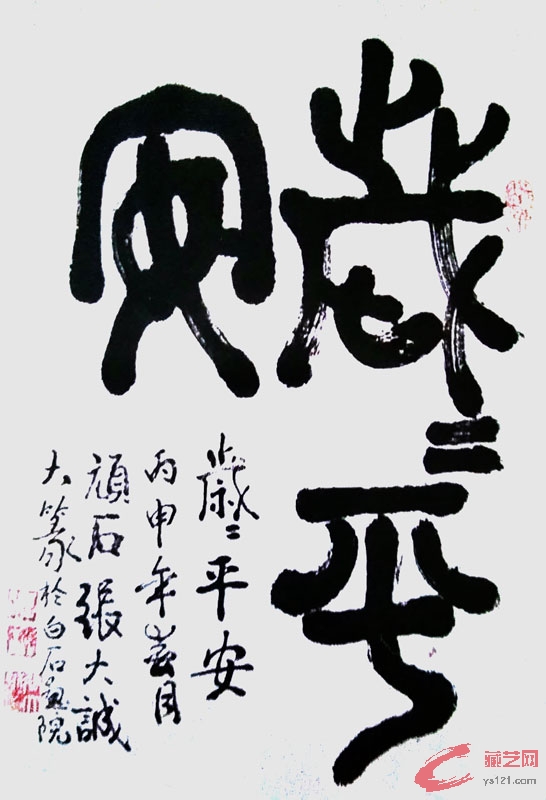 歲〻平
安
歲〻平安
丙申年春月
頑石張大誠
大篆於白石畫院
藏艺网
ys121.com